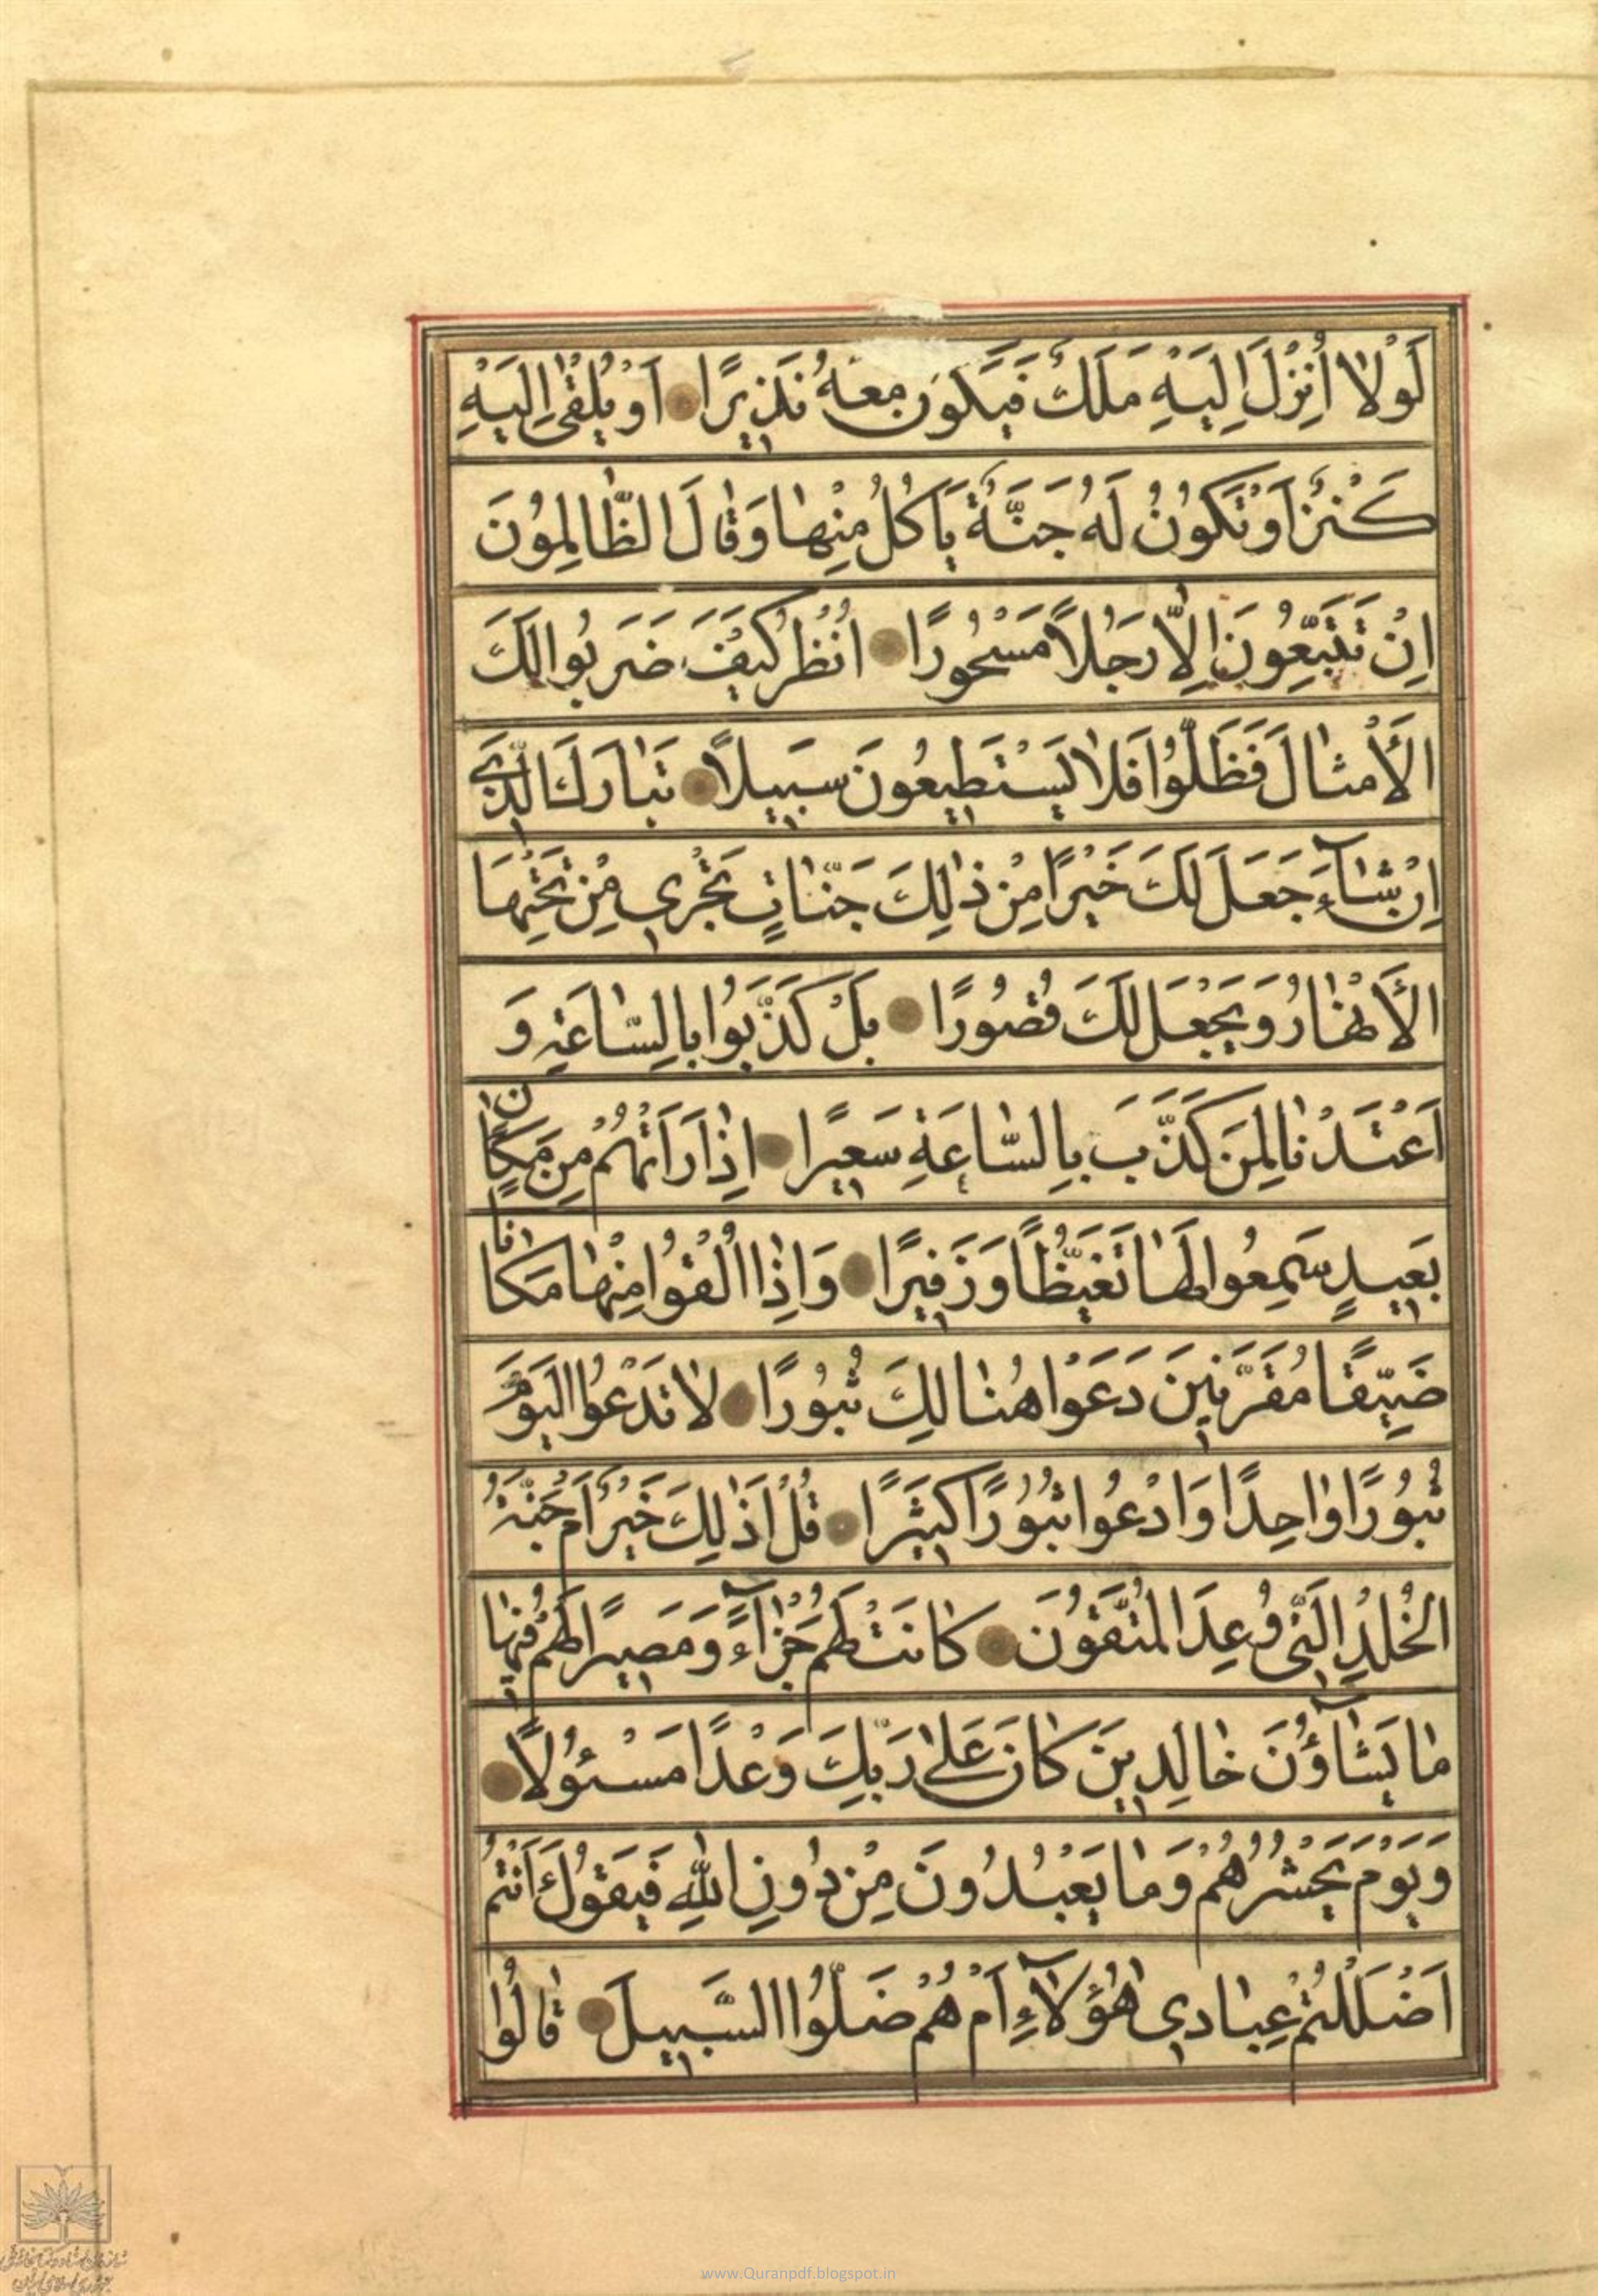 لَوْلَا أُنْزِلَ اِلَيْهِ مَلَكٌ فَيَكُونَ مَعَهُ نَذِيرًا اَوْ يُلْقٰى اِلَيْهِ
كَنْزٌ اَوْ تَكُونُ لَهُ جَنَّةٌ يَاْكُلُ مِنْهٰا وَقٰالَ الظّٰالِمُونَ
اِنْ تَتَّبِعُونَ اِلّٰا رَجُلًا مَسْحُورًا انْظُرْ كَيْفَ ضَرَبُوا لَكَ
الْأَمْثٰالَ فَضَلُّوا فَلٰا يَسْتَطِيعُونَ سَبِيلًا تَبٰارَكَ الَّذِي
اِنْ شٰاۤءَ جَعَلَ لَكَ خَيْرًا مِنْ ذٰلِكَ جَنّٰاتٍ تَجْرِي مِنْ تَحْتِهَا
الْأَنْهٰارُ وَيَجْعَلْ لَكَ قُصُورًا بَلْ كَذَّبُوا بِالسّٰاعَةِ وَ
اَعْتَدْنٰا لِمَنْ كَذَّبَ بِالسّٰاعَةِ سَعِيرًا اِذٰا رَاَتْهُمْ مِنْ مَكٰانٍ
بَعِيدٍ سَمِعُوا لَهٰا تَغَيُّظًا وَزَفِيرًا وَاِذٰا اُلْقُوا مِنْهٰا مَكٰانًا
ضَيِّقًا مُقَرَّنِينَ دَعَوْا هُنٰالِكَ ثُبُورًا لٰا تَدْعُوا الْيَوْمَ
ثُبُورًا وٰاحِدًا وَادْعُوا ثُبُورًا كَثِيرًا قُلْ اَذٰلِكَ خَيْرٌ اَمْ جَنَّةُ
الْخُلْدِ الَّتِي وُعِدَ الْمُتَّقُونَ كٰانَتْ لَهُمْ جَزٰاۤءً وَمَصِيرًا لَهُمْ فِيهٰا
مٰا يَشٰاۤؤُنَ خٰالِدِينَ كٰانَ عَلٰى رَبِّكَ وَعْدًا مَسْئُولًا
وَيَوْمَ يَحْشُرُهُمْ وَمٰا يَعْبُدُونَ مِنْ دُونِ اللّٰهِ فَيَقُولُ ءَاَنْتُمْ
اَضْلَلْتُمْ عِبٰادِي هٰؤُلٰاۤءِ اَمْ هُمْ ضَلُّوا السَّبِيلَ قٰالُوا
www.Quranpdf.blogspot.in